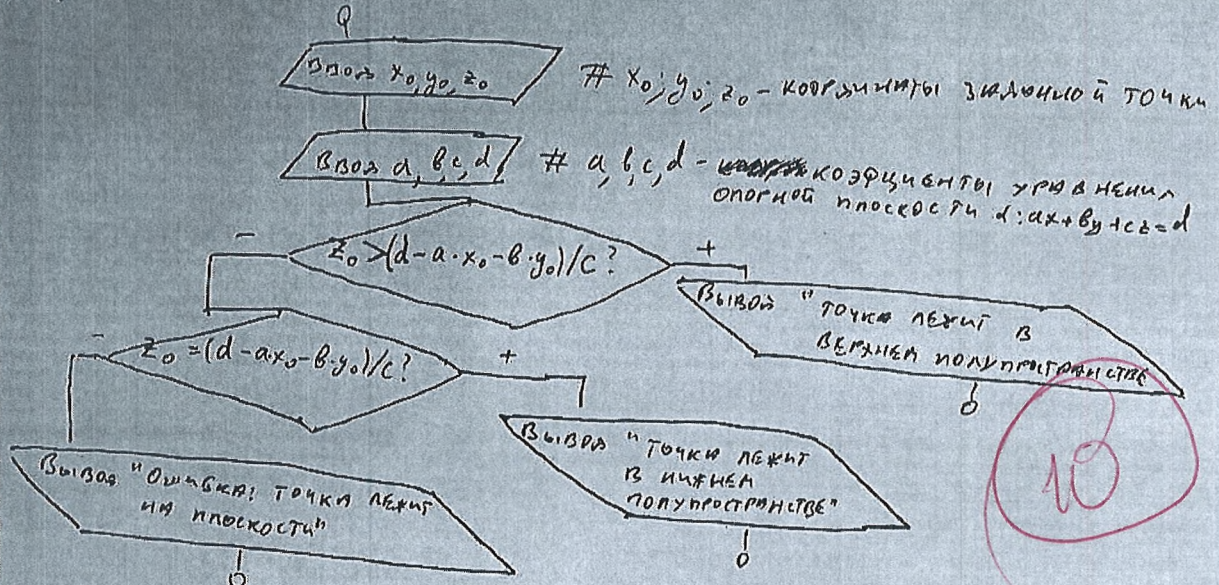 Ввод x₀, y₀, z₀
# x₀; y₀; z₀ - координаты заданной точки
Ввод a, b, c, d
# a, b, c, d - коэфциенты уравнения
опорной плоскости α: ax+by+cz=d
-
z₀ >(d-a·x₀-b·y₀)/c?
+
Вывод "точка лежит в
верхнем полупространстве
-
z₀ =(d-a·x₀-b·y₀)/c?
+
Вывод "точка лежит
в нижнем
полупространстве"
Вывод "Ошибка: точка лежит
на плоскости"
10